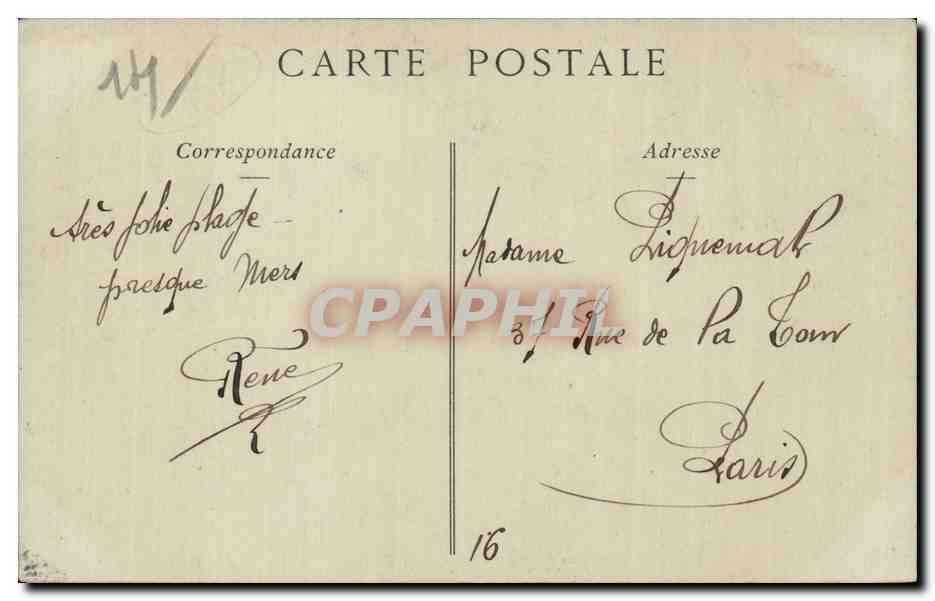 CARTE POSTALE
Correspondance
très jolie plage
presque Mers
René
Adresse
Madame Piquemal
37 Rue de La Tour
Paris
16
CPAPHIL